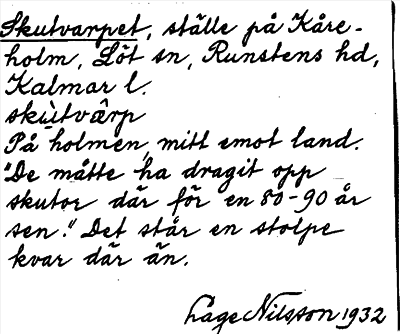 Skutvarpet, ställe på Kåre-
holm, Löt sn, Runstens hd,
Kalmar l.
skùtvârp
På holmen, mitt emot land.
"De måtte ha dragit opp
skutor där för en 80-90 år
sen." Det står en stolpe
kvar där än.
Åage Nilsson 1932